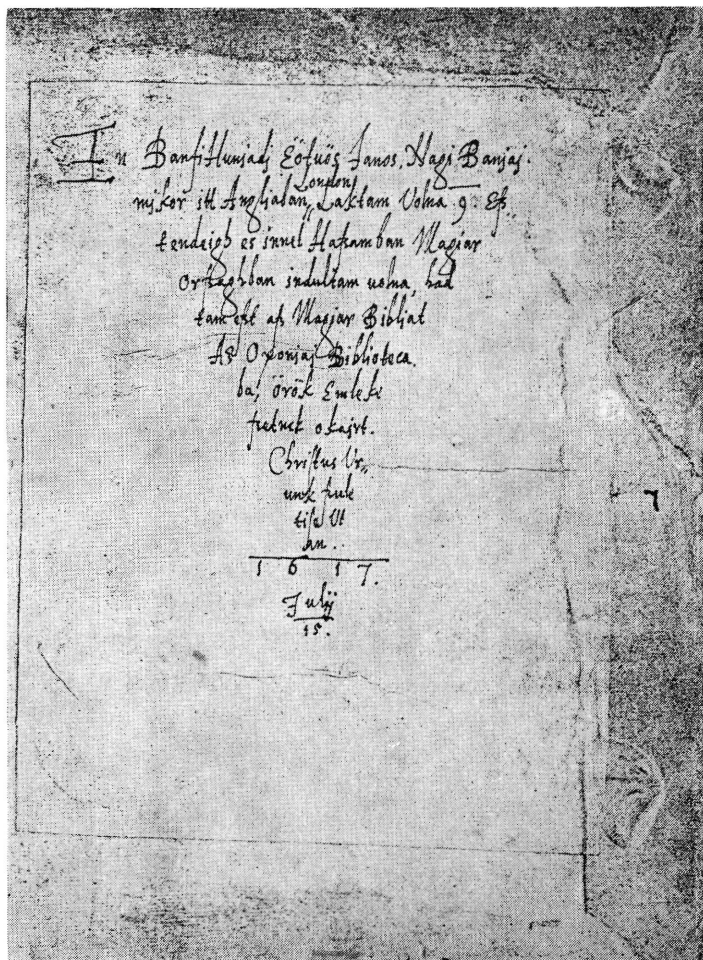 En Banfi Hunjadj Eötuös Janos, Nagi Banjaj.
London
mikor itt Angliaban,, Laktam Volna 9. Esz
tendeigh es innel Hazamban Magiar
Orszaghban indultam uolna, had
tam ezt az Magiar Bibliat
Az Oxoniaj Biblioteca.
ba, örök Emleke
zetnek okajrt.
Christus Ur,,
unk szüle
tise Ut
an.
1 6 1 7.
Julij
15.